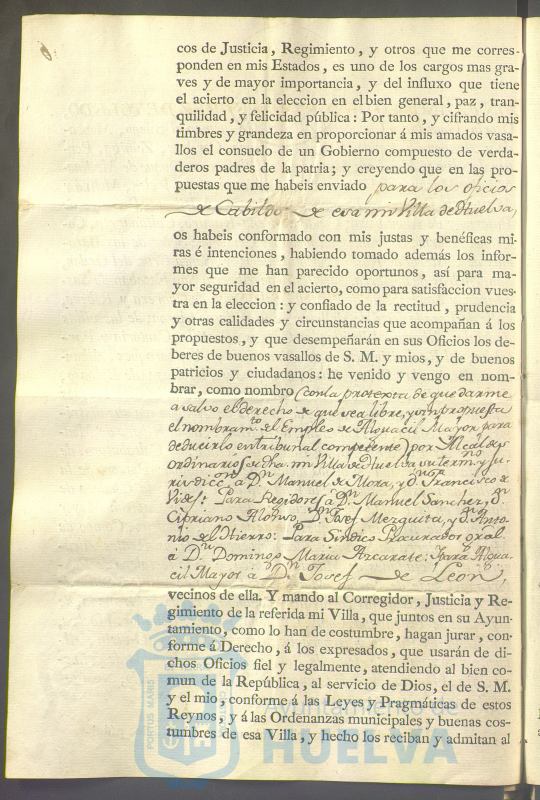 cos de Justicia, Regimiento, y otros que me corres-
ponden en mis Estados, es uno de los cargos mas gra-
ves y de mayor importancia, y del influxo que tiene
el acierto en la eleccion en el bien general, paz, tran-
quilidad, y felicidad pública: Por tanto, y cifrando mis
timbres y grandeza en proporcionar á mis amados vasa-
llos el consuelo de un Gobierno compuesto de verda-
deros padres de la patria; y creyendo que en las pro-
puestas que me habeis enviado para los oficios
de Cabildo de esa mi Villa de Huelva,
os habeis conformado con mis justas y benéficas mi-
ras é intenciones, habiendo tomado además los infor-
mes que me han parecido oportunos, así para ma-
yor seguridad en el acierto, como para satisfaccion vues-
tra en la eleccion: y confiado de la rectitud, prudencia
y otras calidades y circunstancias que acompañan á los
propuestos, y que desempeñarán en sus Oficios los de-
beres de buenos vasallos de S. M. y mios, y de buenos
patricios y ciudadanos: he venido y vengo en nom-
brar, como nombro (con la protexta de quedarme
a salvo el derecho de que sea libre, y sin propuesta
el nombramto. del Empleo de Alguacil Mayor para
deducirlo en tribunal competente) por Alcaldes
ordinarios de dha. mi Villa de Huelva su termno. y ju-
risdiccon. á Dn. Manuel de Mora, y dn. Francisco de
Vides: Para Regidores á Dn. Manuel Sanchez, dn.
Cipriano Alonso, Dn. Josef Mezquita, y dn. Anto-
nio del Hierro: Para Sindico Procurador gral
á Dn. Domingo Maria Azcarate: Y para Algua-
cil Mayor á Dn. Josef de Leon,
vecinos de ella. Y mando al Corregidor, Justicia y Re-
gimiento de la referida mi Villa, que juntos en su Ayun-
tamiento, como lo han de costumbre, hagan jurar, con-
forme á Derecho, á los expresados, que usarán de di-
chos Oficios fiel y legalmente, atendiendo al bien co-
mun de la República, al servicio de Dios, el de S. M.
y el mio, conforme á las Leyes y Pragmáticas de estos
Reynos, y á las Ordenanzas municipales y buenas cos-
tumbres de esa Villa, y hecho los reciban y admitan al
PORTUS MARIS
Ayuntamiento de
HUELVA